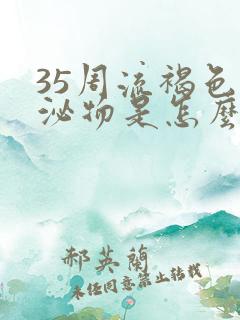 35周流褐色
泌物是怎麼
郝英蘭
未经同意禁止转载